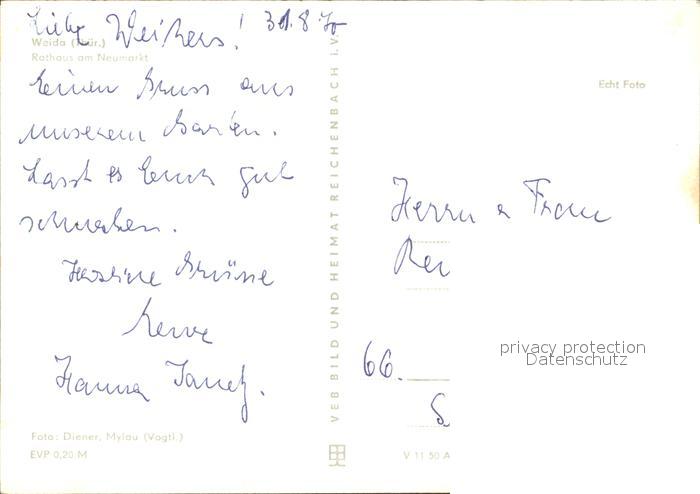 Liebe Weikers! 31.8.70
Weida (Thür.)
Rathaus am Neumarkt
Echt Foto
Einen Gruss aus
unserem
Lasst es Euch gut
schmecken.
Herrn u Frau
Herzliche Grüsse
Eure
Hanna
66.
privacy protection
Datenschutz
VEB BILD UND HEIMAT REICHENBACH i.V.
Foto: Diener, Mylau (Vogtl.)
EVP 0,20 M
V 11 50 A